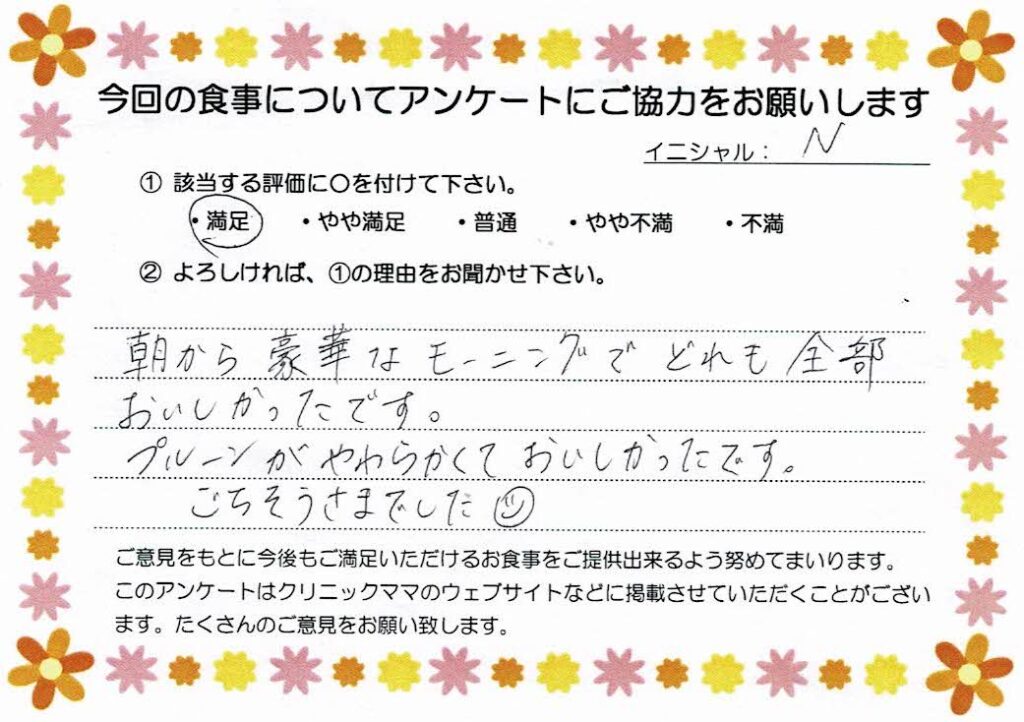 今回の食事についてアンケートにご協力をお願いします
イニシャル： N
① 該当する評価に〇を付けて下さい。
・満足 ・やや満足 ・普通 ・やや不満 ・不満
② よろしければ、①の理由をお聞かせ下さい。
朝から豪華なモーニングでどれも全部
おいしかったです。
プルーンがやわらかくておいしかったです。
ごちそうさまでした
ご意見をもとに今後もご満足いただけるお食事をご提供出来るよう努めてまいります。
このアンケートはクリニックママのウェブサイトなどに掲載させていただくことがござい
ます。たくさんのご意見をお願い致します。